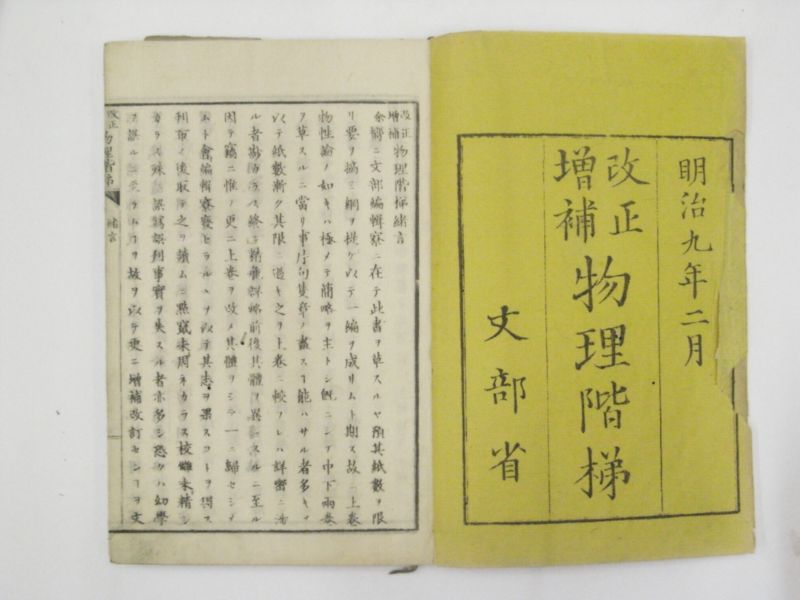 明治九年二月
改正
増補
物理階梯
文部省
改正
増補
物理階梯緒言
余嚮ニ文部編輯寮ニ在テ此書ヲ草スルヤ預其紙數ヲ限
リ要ヲ撮ミ綱ヲ提ケ以テ一編ヲ成サムト期ス故ニ上卷
物性論ノ如キハ極メテ簡略ヲ主トシ既ニシテ中下兩卷
ヲ草スルニ當リ事片句隻章ノ盡ス丁能ハサル者多キヲ
以テ紙數漸ク其限ニ過キ之ヲ上卷ニ較フレハ詳密ニ
ル者尠カラス終ニ精麤詳略前後其體ヲ異ニスルニ至ル
因テ竊ニ惟ノ更ニ上卷ヲ改メ其體ヲシテ一ニ歸セシメ
ムト會編輯寮廢セラルヽヲ以テ其志ヲ果スコトヲ得ス
刊布ノ後取テ之ヲ讀ムニ點竄未周ネカラス校讎未精シ
カラス殊ニ誤寫誤刊事實ヲ失スル者亦多シ恐クハ幼學
ヲ誤ル
故ヲ以テ更ニ增補改訂センコヲ文
改正
物理階梯
緒言